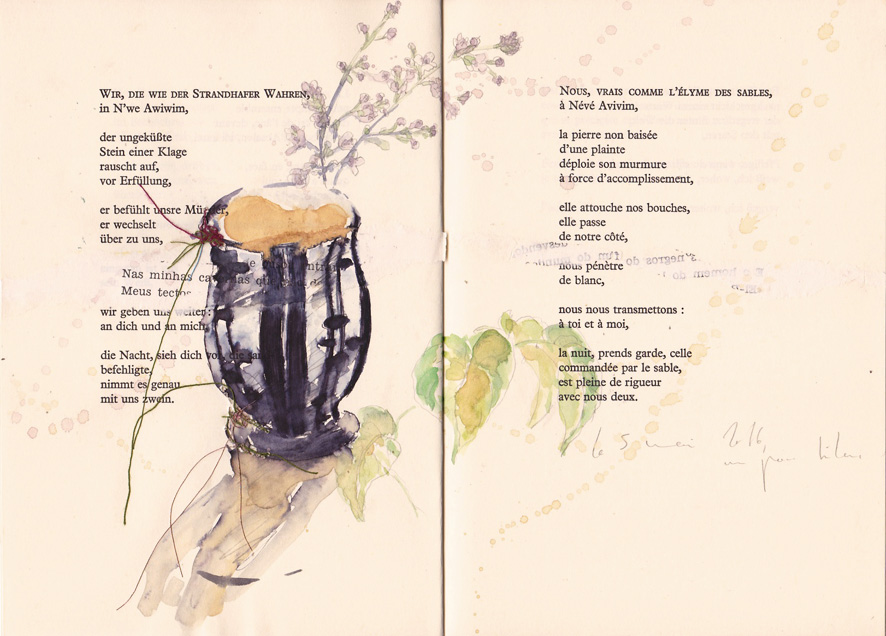 WIR, DIE WIE DER STRANDHAFER WAHREN,
in N'we Awiwim,
der ungeküßte
Stein einer Klage
rauscht auf,
vor Erfüllung,
er befühlt unsre Münder,
er wechselt
über zu uns,
Nas minhas
Meus
wir geben uns weiter:
an dich und an mich,
die Nacht, sieh dich vor, die
befehligte,
nimmt es genau
mit uns zwein.
NOUS, VRAIS COMME L'ÉLYME DES SABLES,
à Névé Avivim,
la pierre non baisée
d'une plainte
déploie son murmure
à force d'accomplissement,
elle attouche nos bouches,
elle passe
de notre côté,
nous pénètre
de blanc,
nous nous transmettons :
à toi et à moi,
la nuit, prends garde, celle
commandée par le sable,
est pleine de rigueur
avec nous deux.
5 mai 2016,